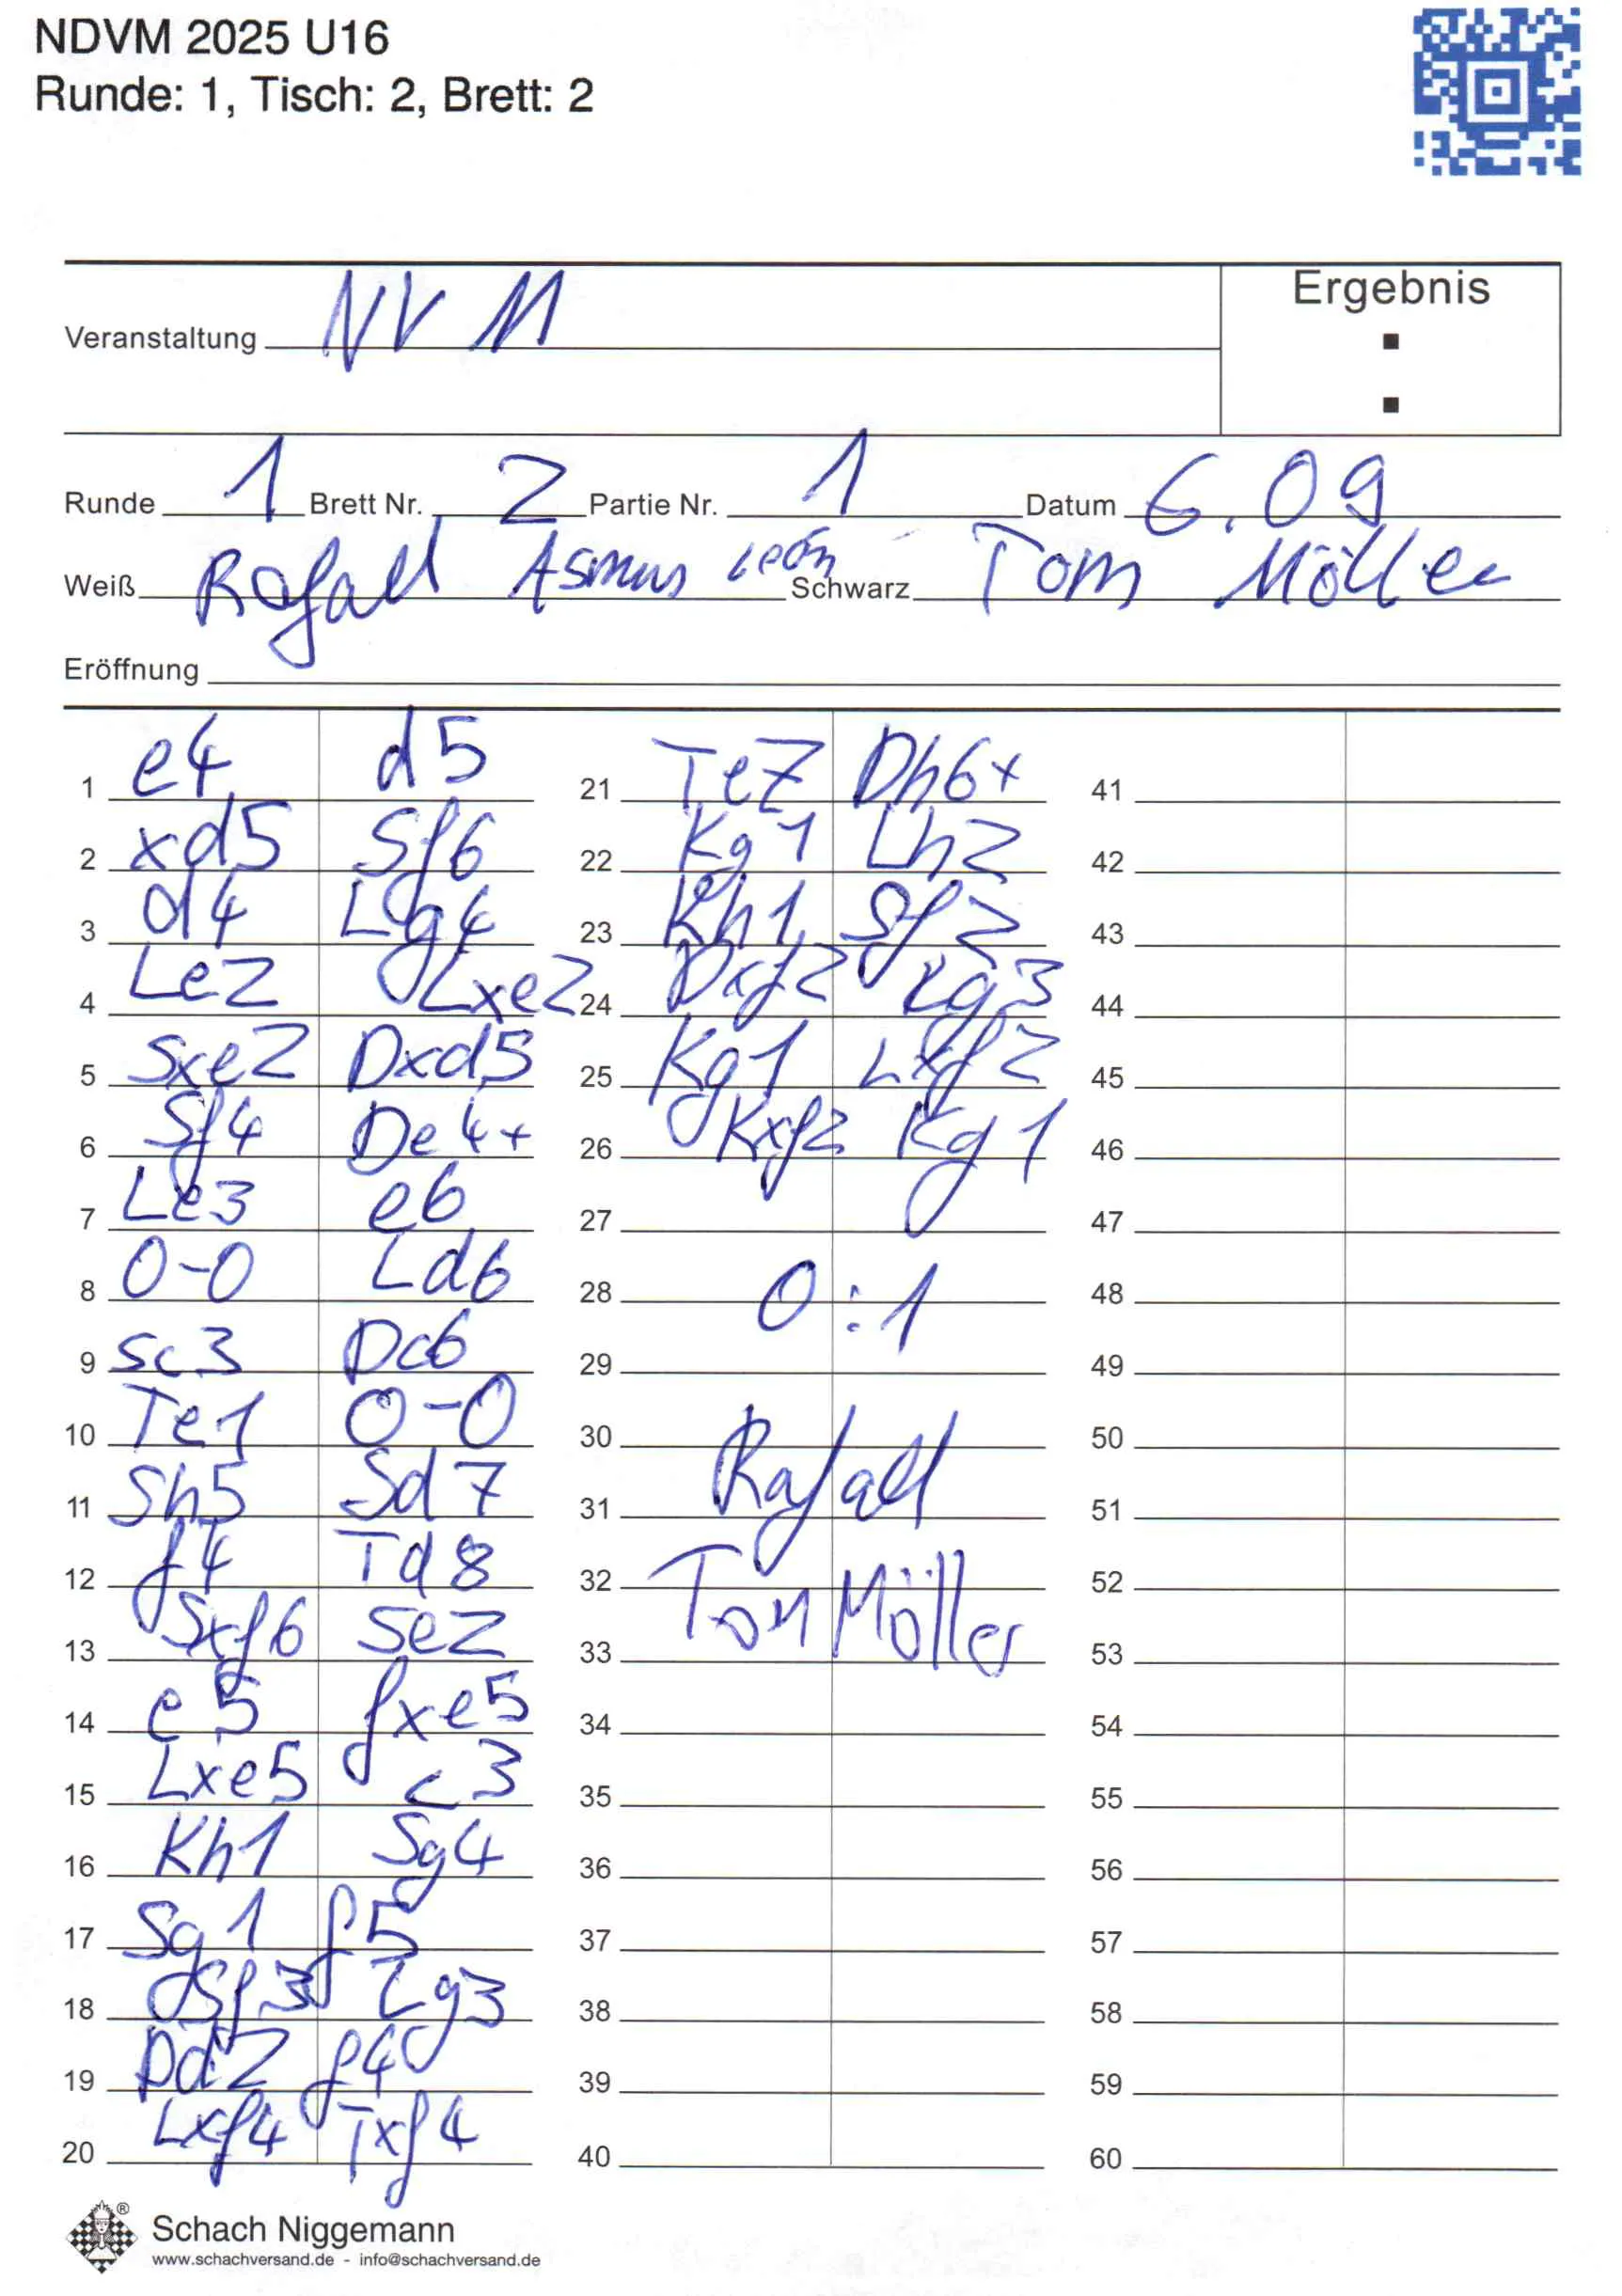 NDVM 2025 U16
Runde: 1, Tisch: 2, Brett: 2
Ergebnis
Veranstaltung NV M
:
Runde 1 Brett Nr. 2 Partie Nr. 1 Datum 6.09
Weiß Rafael Asmus León Schwarz Tom Möller
Eröffnung
1 e4 d5
2 xd5 Sf6
3 d4 Lg4
4 Le2 Lxe2
5 Sxe2 Dxd5
6 Sf4 De4+
7 Le3 e6
8 0-0 Ld6
9 Sc3 Dc6
10 Te1 0-0
11 Sh5 Sd7
12 f4 Td8
13 Sxf6 Se2
14 e5 fxe5
15 Lxe5 c3
16 Kh1 Sg4
17 Sg1 f5
18 Sf3 Lg3
19 Dd2 f4
20 Lxf4 Txf4
21 Te2 Dh6+
22 Kg1 Lh2
23 Kh1 Sf2
24 Dxf2 Lg3
25 Kg1 Lxf2
26 Kxf2 Kg1
27
28 0:1
29
30
31 Rafael
32
33 Tom Möller
34
35
36
37
38
39
40
41
42
43
44
45
46
47
48
49
50
51
52
53
54
55
56
57
58
59
60
Schach Niggemann
www.schachversand.de - info@schachversand.de